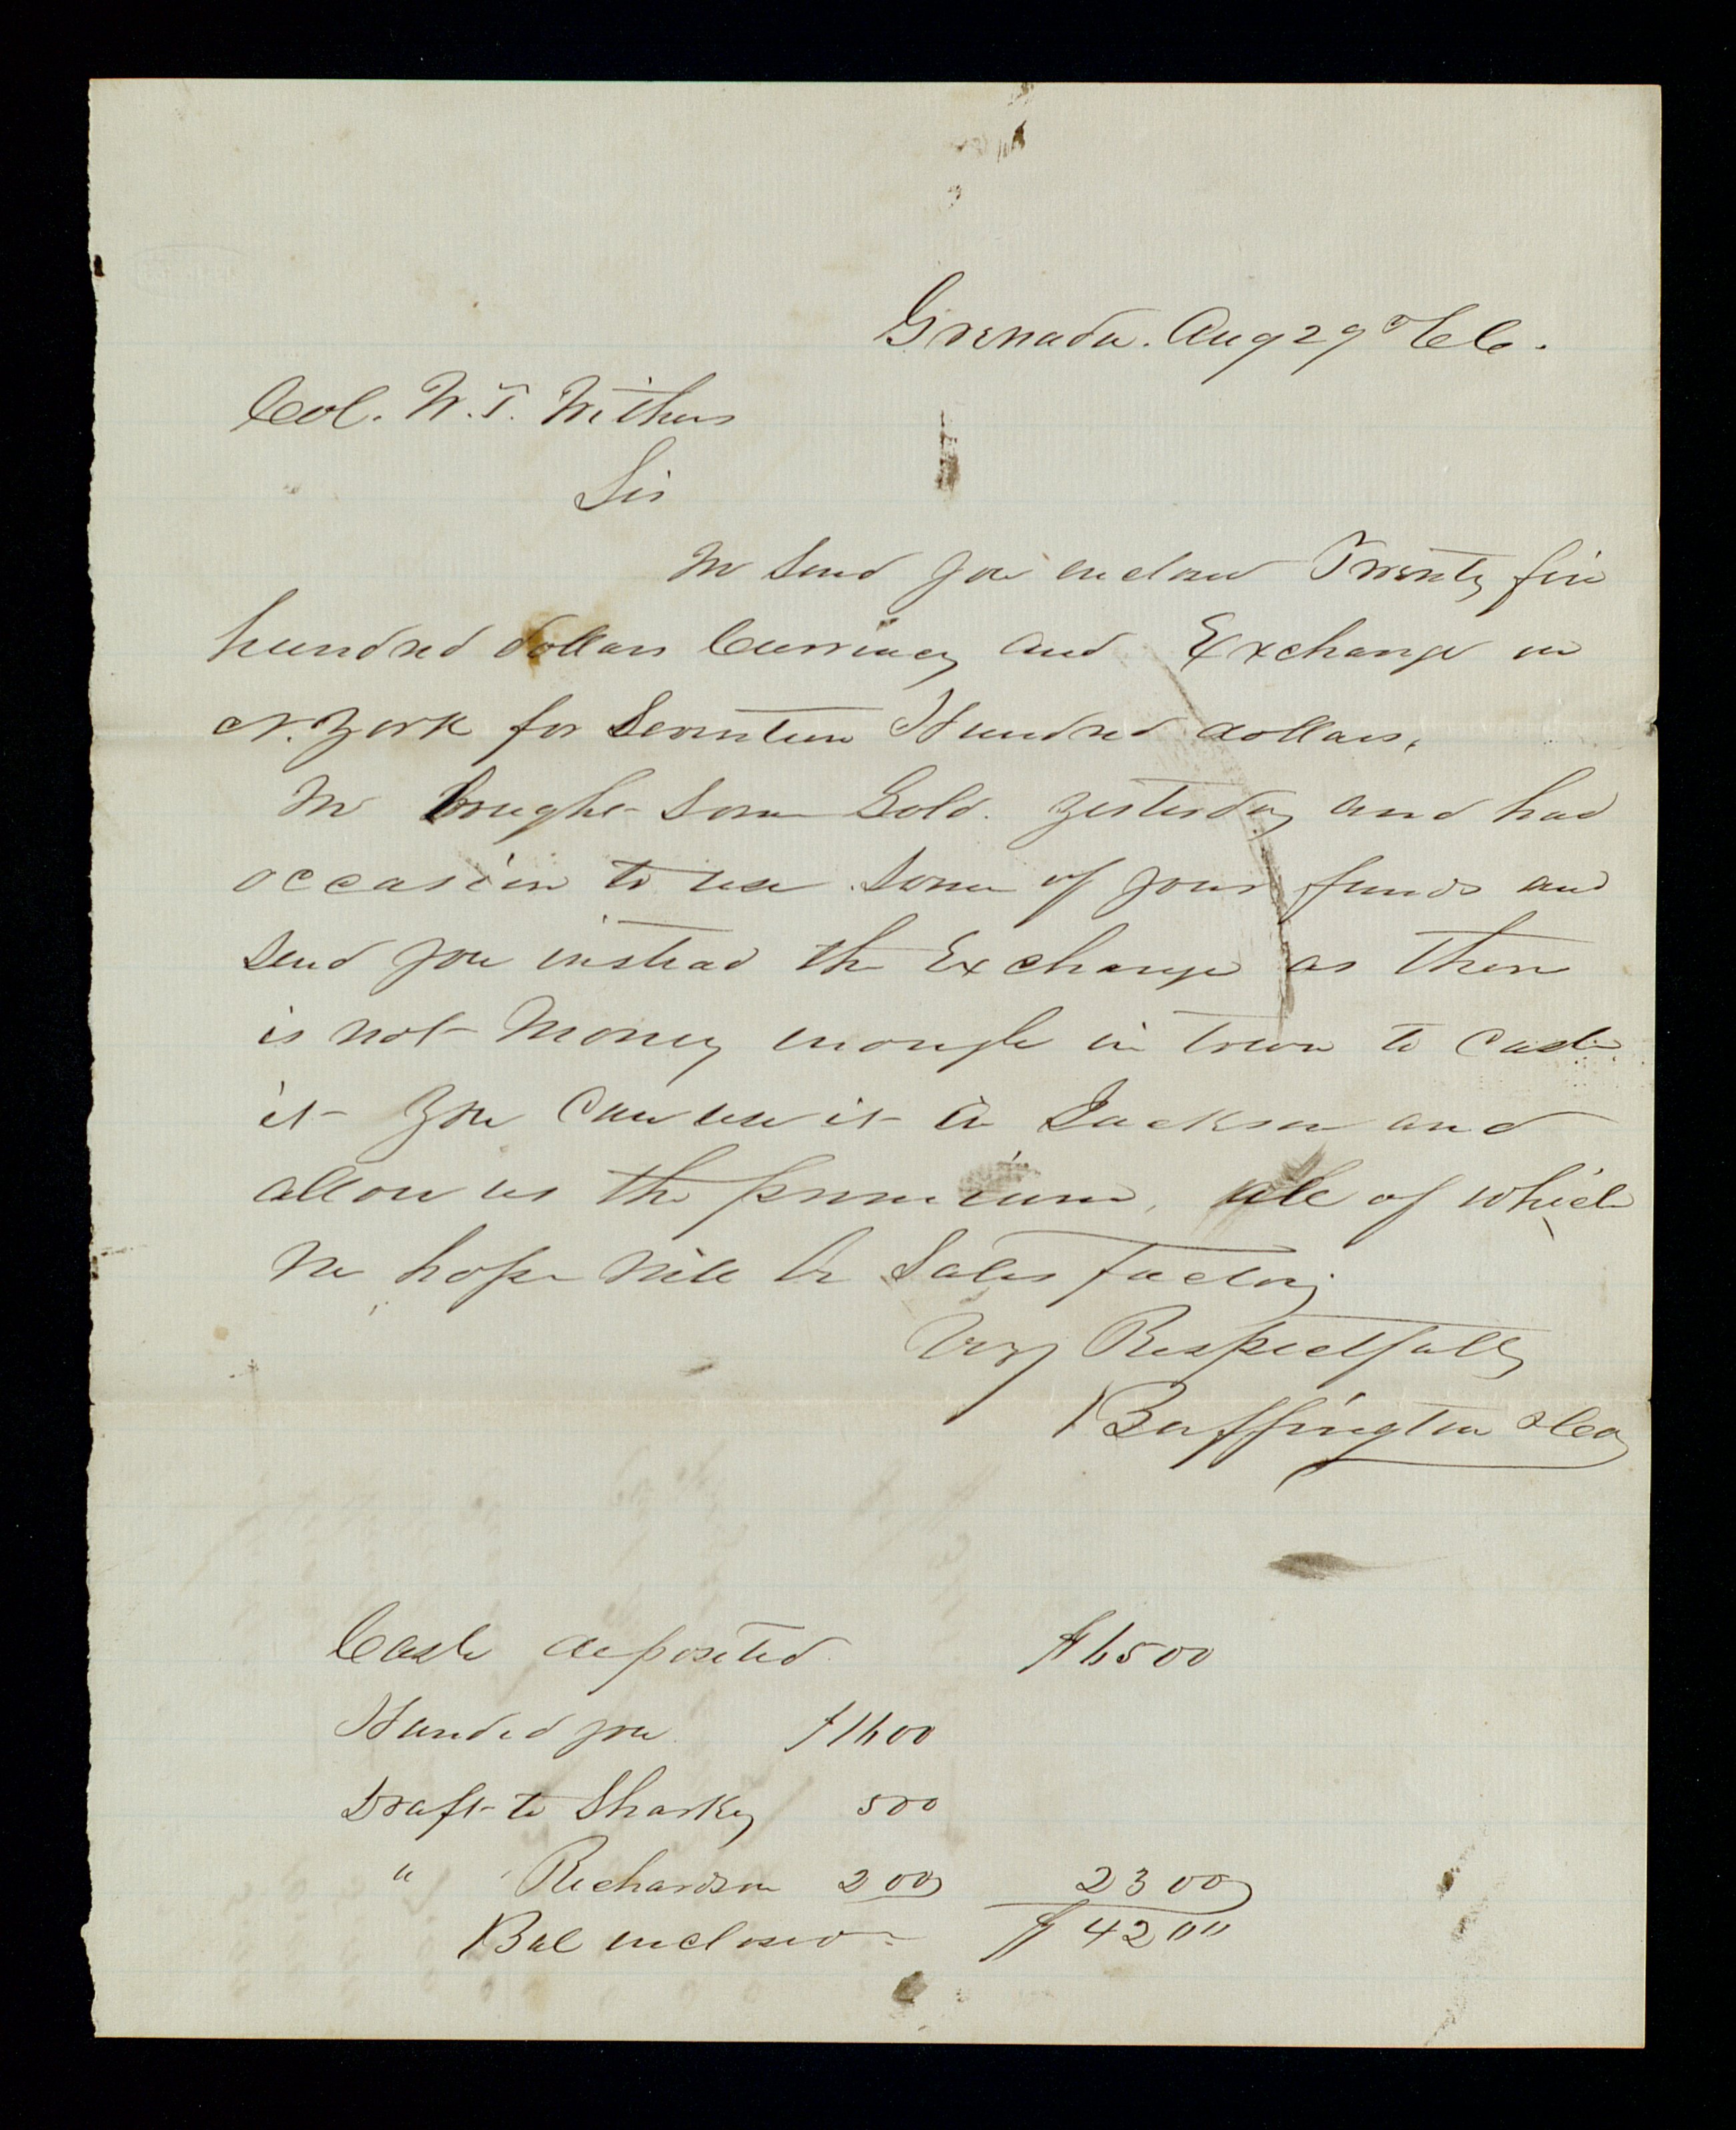 Grenada. Aug 29th 66.
Col. W. T. Withers
Sir
We send you enclosed Twenty five
hundred dollars Currency and Exchange on
N. York for Seventeen Hundred dollars.
We bought some Gold. yesterday and had
occasion to use some of your funds and
send you instead the Exchange as there
is not money enough in town to cash
it You can use it in Jackson and
allow us the premium, all of which
we hope will be satisfactory
Very Respectfully
Buffington & Co
Cash deposited $6500
Handed you $1600
Draft to Sharkey 500
" Richardson 200 2300
Bal enclosed $4200